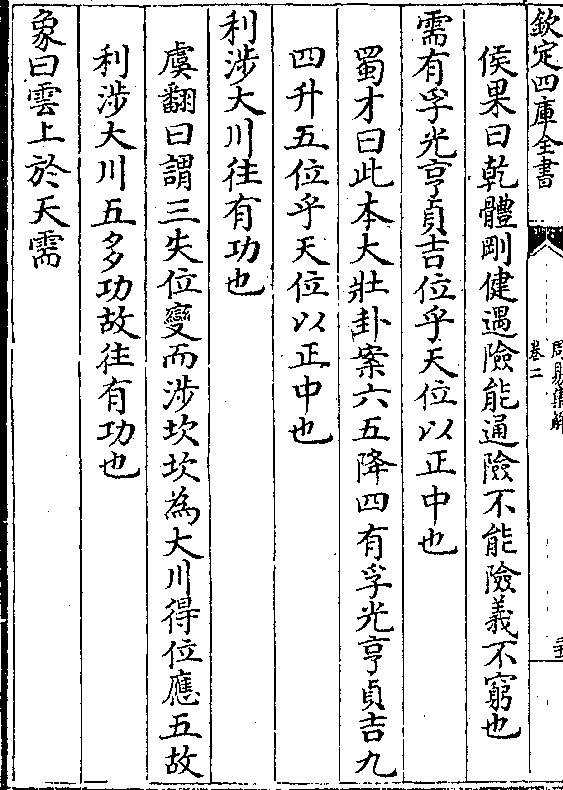 欽定四庫全書
周易集解
卷二
侯果曰乾體剛健遇險能通險不能險義不窮也
需有孚光亨貞吉位乎天位以正中也
蜀才曰此本大壯卦案六五降四有孚光亨貞吉九
四升五位乎天位以正中也
利涉大川往有功也
虞翻曰謂三失位變而涉坎坎為大川得位應五故
利涉大川五多功故往有功也
象曰雲上於天需